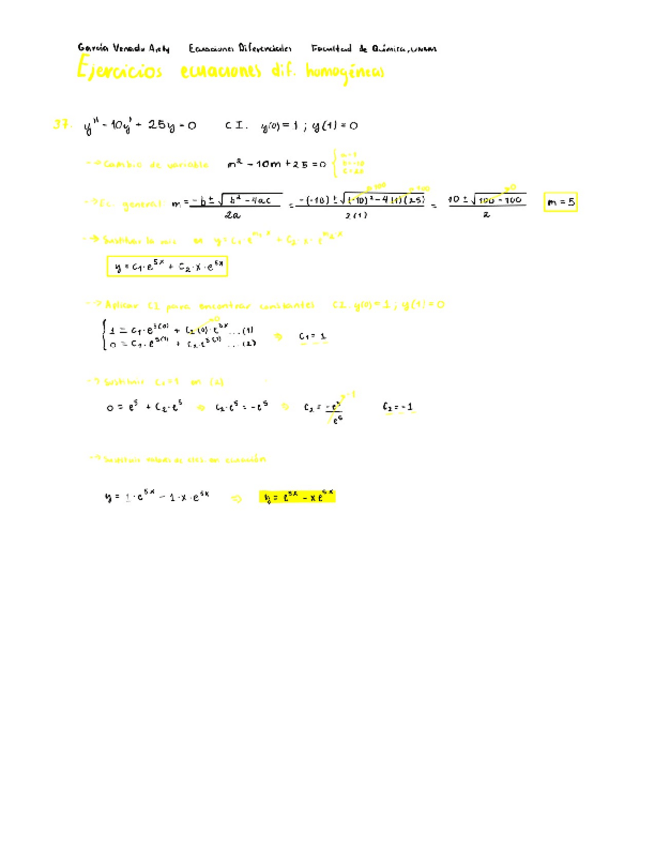 García Venadu Arely Ecuaciones Diferenciales Facultad de Química, UNAM
Ejercicios ecuaciones dif. homogéneas
37. y'' - 10y' + 25y = 0 C.I. y(0) = 1 ; y(1) = 0
--> Cambio de variable m² - 10m + 25 = 0
--> Ec. general m = -b ± √b² - 4ac / 2a = -(-10) ± √(-10)² - 4(1)(25) / 2(1) = 10 ± √100 - 100 / 2 m = 5
--> Sustituir
y = C₁·e^5x + C₂·x·e^5x
--> Aplicar CI para encontrar constantes CI. y(0) = 1 ; y(1) = 0
1 = C₁·e^5(0) + C₂(0)·e^5x ... (1) => C₁ = 1
0 = C₁·e^5(1) + C₂·e^5(1) ... (2)
--> Sustituir C₁=1 en (2)
0 = e^5 + C₂·e^5 => C₂·e^5 = -e^5 => C₂ = -e^5 / e^5 C₂ = -1
--> Sustituir en ecuación
y = 1·e^5x - 1·x·e^5x => y = e^5x - xe^5x